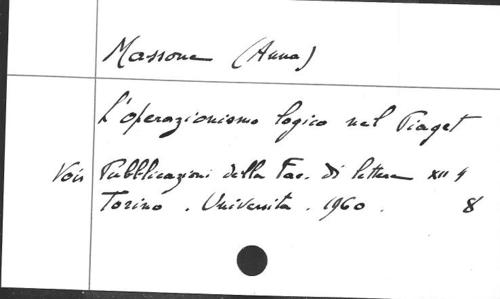 Massone (Anna)
L'operazionismo logico nel Piaget
Voir Pubblicazioni della Fac. di lettere XII 4
Torino. Universita. 1960. 8